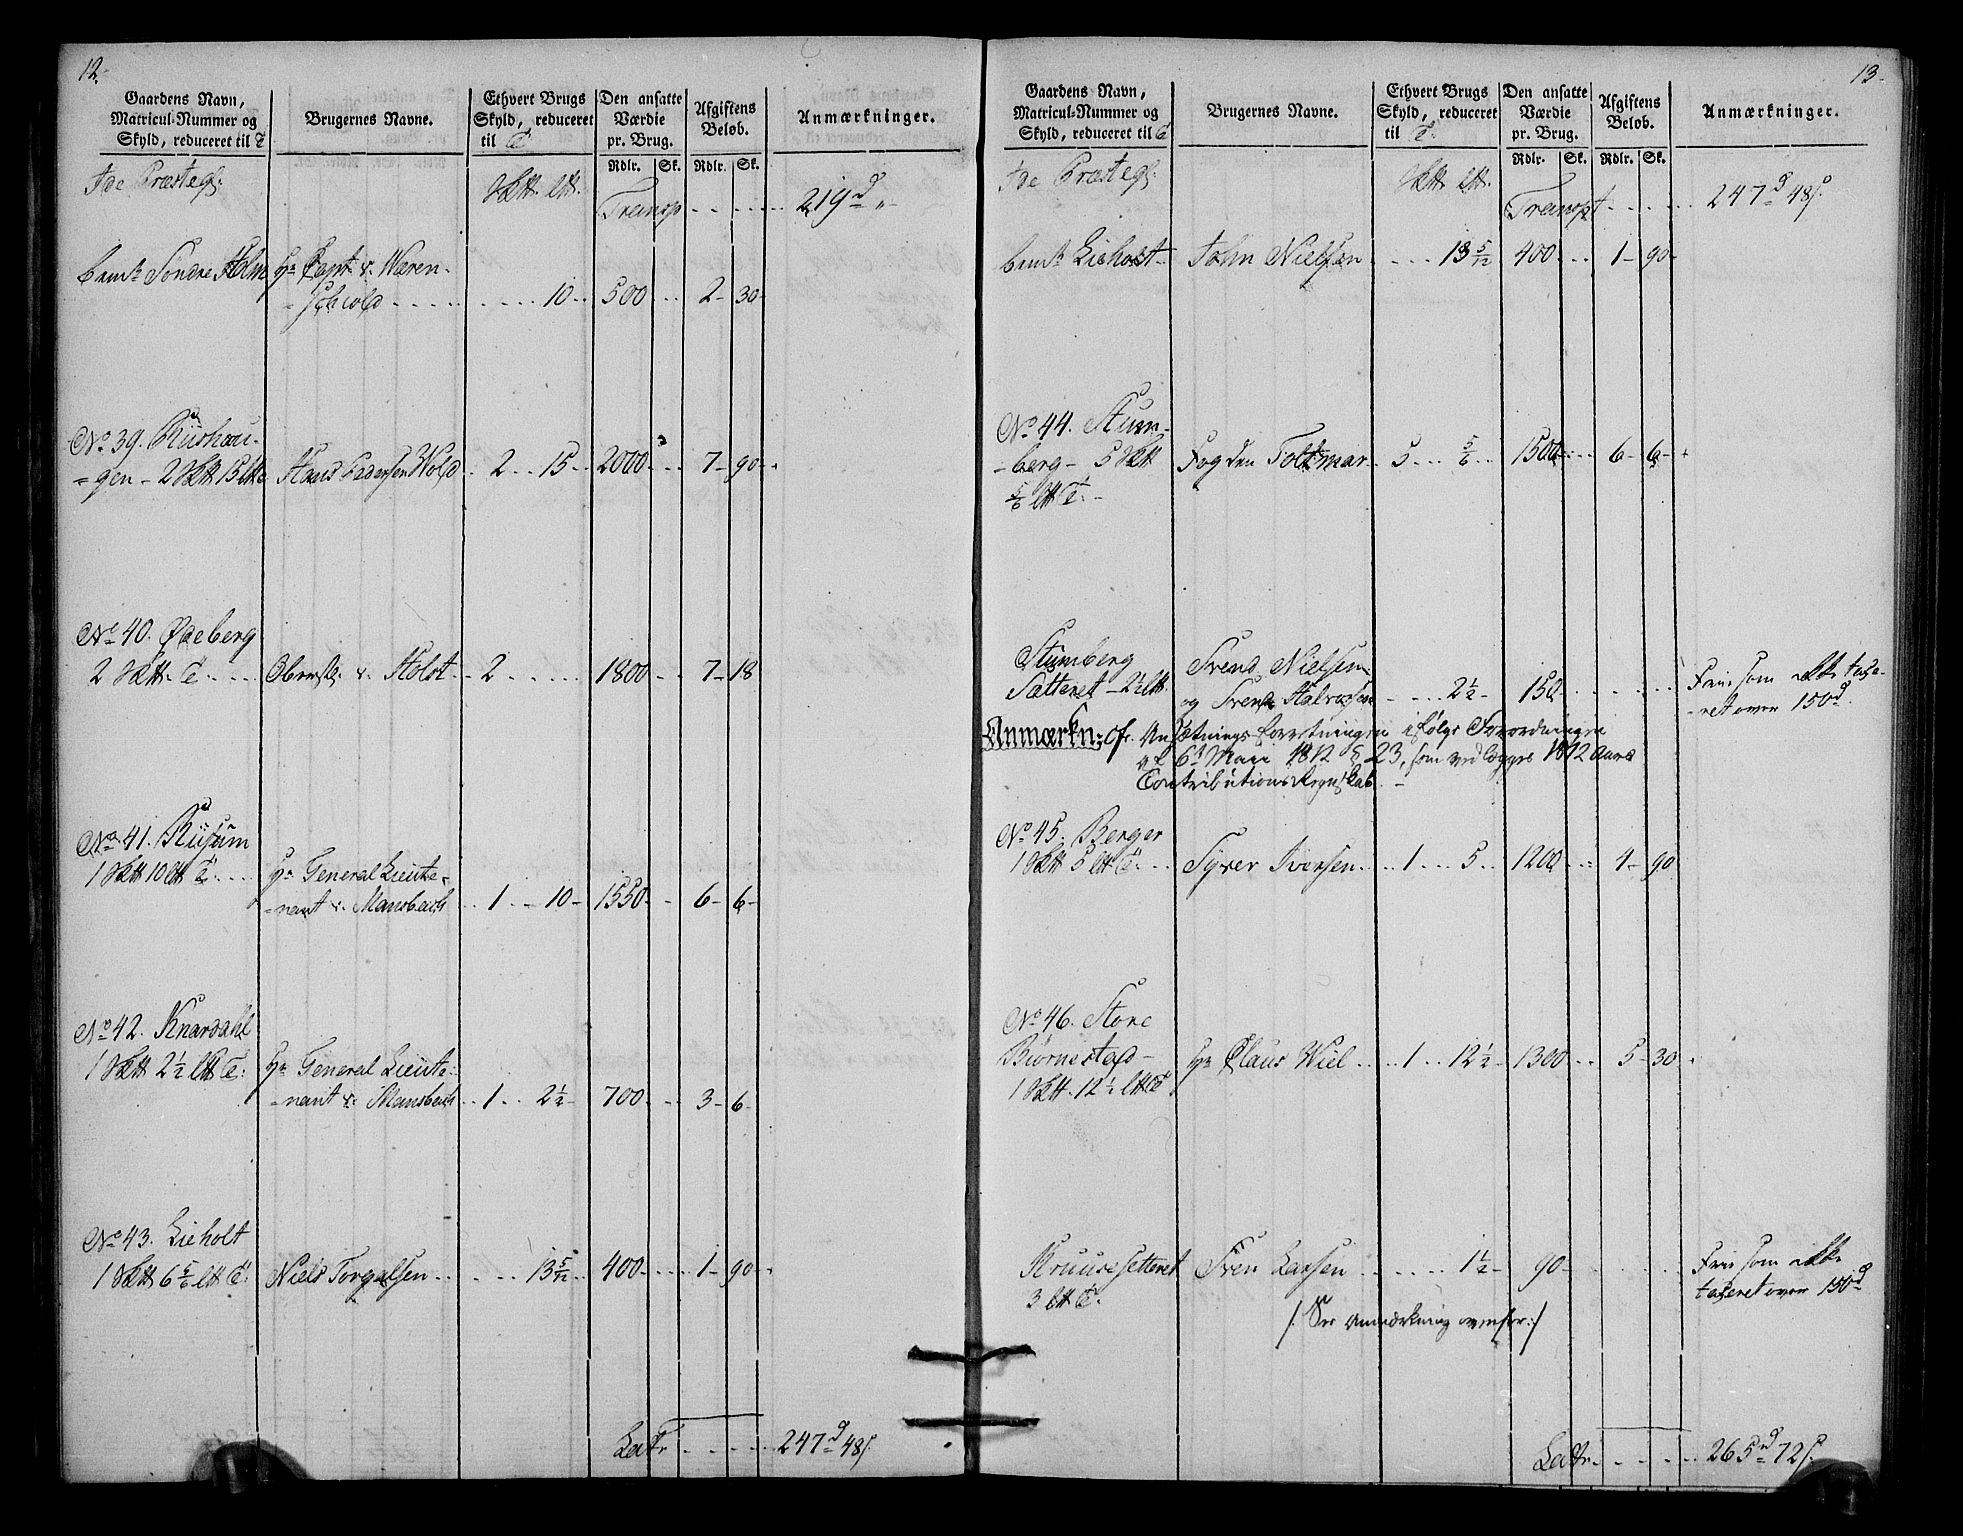 12.
Gaardens Navn,
Matricul-Nummer og
Skyld, reduceret til T
Brugernes Navne.
Ethvert Brugs
Skyld, reduceret
til T
Den ansatte
Værdie
pr. Brug.
Rdlr. Sk.
Afgiftens
Beløb.
Rdlr. Sk.
Anmærkninger.
Ide Præstegl: Sktt. ltt. Transp . . . . . 219d „
Søndre Holm Hr Capt. v. Wæren-
-schiold . . . . . 10 . . 500 . . 2 - 30 -
No 39. Riishou-
-gen - 2 Sktt 15 ltt Hans Pedersen Wold . 2 . . 15 . . 2000 . . 7 - 90 -
No 40. Ødeberg
2 Sktt. T . . . Obrestl: v. Holst . . 2 . . . . . 1800 . . 7 - 18
No 41. Riisum
1 Sktt 10 ltt T . . . Hr General Lieute-
-nant v. Mansbach . . 1 . . 10 - 1550 . . 6 - 6 -
No 42. Knardahl
1 Sktt 2½ ltt T: Hr General Lieute-
-nant v. Mansbach . . 1 . . 2½ - 700 . . 3 - 6 -
No 43. Lieholt
1 Sktt 6 5/6 ltt T: Niels Torgalsen . . . . . 13 5/12 . . 400 . . . . 1 - 90 -
Latr . . . . . 247d 48s.
13.
Gaardens Navn,
Matricul-Nummer og
Skyld, reduceret til T
Brugernes Navne.
Ethvert Brugs
Skyld, reduceret
til T.
Den ansatte
Værdie
pr. Brug.
Rdlr. Sk.
Afgiftens
Beløb.
Rdlr. Sk.
Anmærkninger.
Ide Præstegl: Sktt. ltt. Transpt . . . . . 247d 48s.
Lieholt John Nielsen . . . . 13 5/12 400 . . . 1 - 90 -
No 44. Stum-
-berg - 5 Sktt Fogden Foltmar . . 5 . . . 5/6 . . 1500 . . . 6 - 6 -
5/6 ltt T. -
Stumberg Svend Nielsen
Sætteret - 2½ ltt. og Svend Halvorsen - . . . 2½ - 150 . . . . . . Frie som ikke taxe-
-ret over 150d.
Anmærkn: cfr. Ansætnings forretningen ifølge Forordningen
af 6t Maii 1812 § 23, som vedlægges 1812 Aars
Contributions Regnskab. -
No 45. Berger
1 Sktt 5 ltt T. . . Syver Iversen . . . 1 . . . 5 . . 1200 . . 4 - 90
No 46. Store
Biørnestad - Hr Claus Wiel . . . 1 . . 12½ - 1300 . . 5 - 30 -
1 Sktt. 12½ ltt T
Kruusesetteret Sven Larsen . . . . . . 1½ - 90 - . . . . . Frie som ikke
3 ltt T. taxeret over 150d
/: See Anmærkning ovenfor :/
Latr . . . . . 265d 72s.